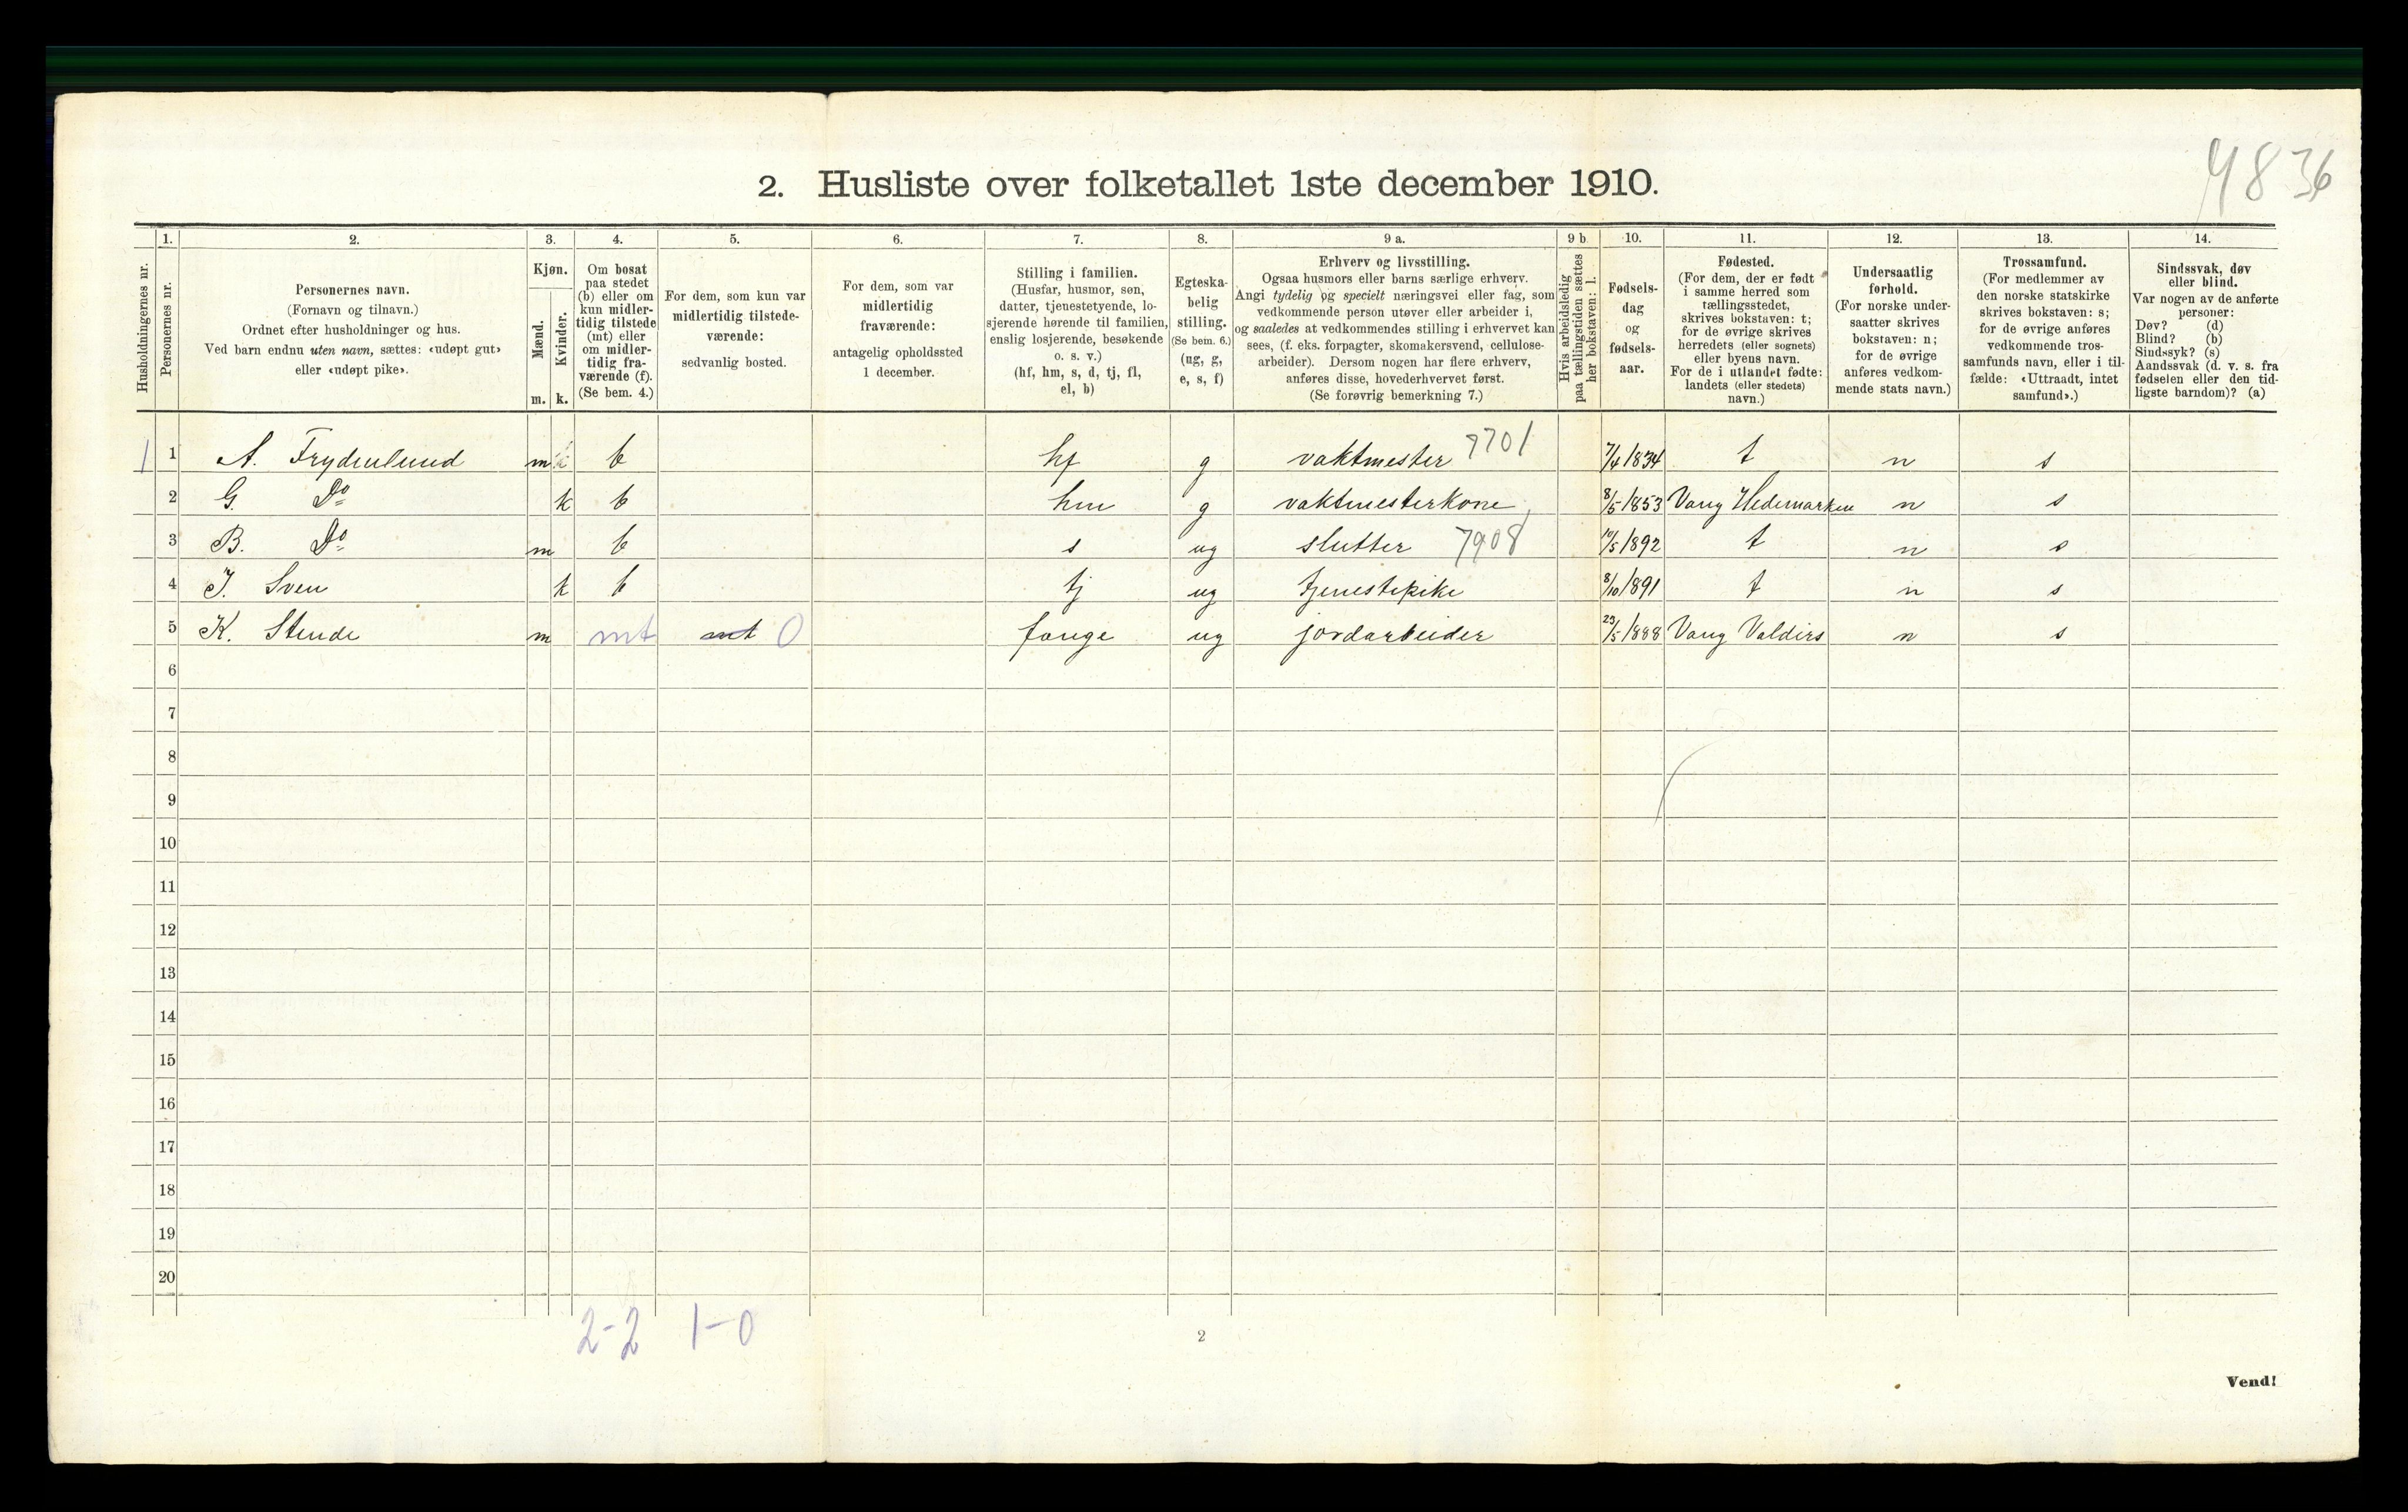 4836
2. Husliste over folketallet 1ste december 1910.
1. 2. 3. 4. 5. 6. 7. 8. 9 a. 9 b 10. 11. 12. 13. 14.
Husholdningernes nr.
Personernes nr.
Personernes navn.
(Fornavn og tilnavn.)
Ordnet efter husholdninger og hus.
Ved barn endnu uten navn, sættes: «udøpt gut»
eller «udøpt pike».
Kjøn.
Mænd.
Kvinder.
m. k.
Om bosat
paa stedet
(b) eller om
kun midler-
tidig tilstede
(mt) eller
om midler-
tidig fra-
værende (f).
(Se bem. 4.)
For dem, som kun var
midlertidig tilstede-
værende:
sedvanlig bosted.
For dem, som var
midlertidig
fraværende:
antagelig opholdssted
1 december.
Stilling i familien.
(Husfar, husmor, søn,
datter, tjenestetyende, lo-
sjerende hørende til familien,
enslig losjerende, besøkende
o. s. v.)
(hf, hm, s, d, tj, fl,
el, b)
Egteska-
belig
stilling.
(Se bem. 6.)
(ug, g,
e, s, f)
Erhverv og livsstilling.
Ogsaa husmors eller barns særlige erhverv.
Angi tydelig og specielt næringsvei eller fag, som
vedkommende person utøver eller arbeider i,
og saaledes at vedkommendes stilling i erhvervet kan
sees, (f. eks. forpagter, skomakersvend, cellulose-
arbeider). Dersom nogen har flere erhverv,
anføres disse, hovederhvervet først.
(Se forøvrig bemerkning 7.)
Hvis arbeidsledig
paa tællingstiden sættes
her bokstaven: l.
Fødsels-
dag
og
fødsels-
aar.
Fødested.
(For dem, der er født
i samme herred som
tællingsstedet,
skrives bokstaven: t;
for de øvrige skrives
herredets (eller sognets)
eller byens navn.
For de i utlandet fødte:
landets (eller stedets)
navn.)
Undersaatlig
forhold.
(For norske under-
saatter skrives
bokstaven: n;
for de øvrige
anføres vedkom-
mende stats navn.)
Trossamfund.
(For medlemmer av
den norske statskirke
skrives bokstaven: s;
for de øvrige anføres
vedkommende tros-
samfunds navn, eller i til-
fælde: «Uttraadt, intet
samfund».)
Sindssvak, døv
eller blind.
Var nogen av de anførte
personer:
Døv? (d)
Blind? (b)
Sindssyk? (s)
Aandssvak (d. v. s. fra
fødselen eller den tid-
ligste barndom)? (a)
1 1 A. Frydenlund m b hf g vaktmester 7701 7/4 1834 t n s
2 G. Do k b hm g vaktmesterkone 8/5 1853 Vang Hedemarken n s
3 B. Do m b s ug slutter 7908 10/5 1892 t n s
4 J. Sven k b tj ug tjenestepike 8/10 1891 t n s
5 K. Stende m mt mt 0 fange ug jordarbeider 23/5 1888 Vang Valdirs n s
6
7
8
9
10
11
12
13
14
15
16
17
18
19
20
2-2 1-0
2
Vend!